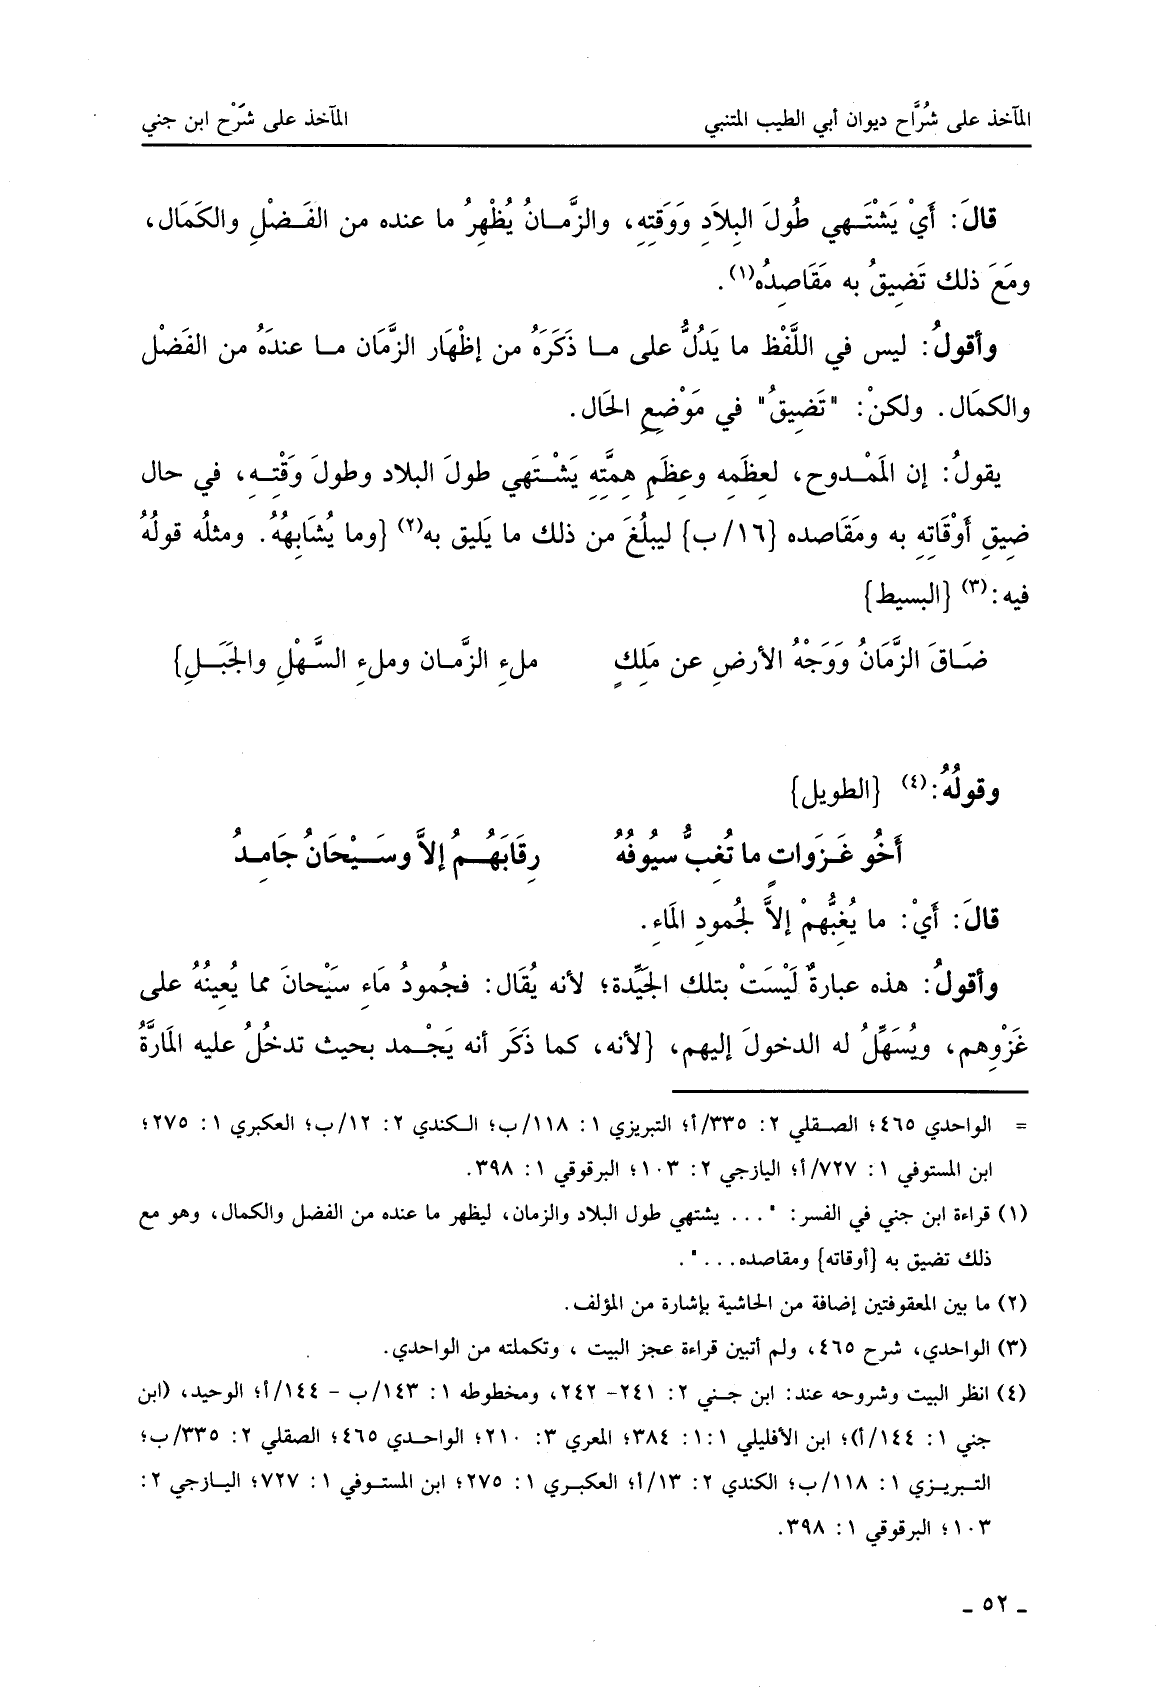 المآخذ على شُرَّاح ديوان أبي الطيب المتنبي المآخذ على شَرْح ابن جني
قالَ: أَيْ يَشْتَهي طُولَ البِلاَدِ وَوَقتِهِ، والزَّمانُ يُظْهِرُ ما عنده من الفَضْلِ والكَمَال،
ومَعَ ذلك تَضِيقُ به مَقَاصِدُه(١).
وأقولُ: ليس في اللَّفْظ ما يَدُلُّ على ما ذَكَرَهُ من إظْهَار الزَّمَان ما عندَهُ من الفَضْل
والكمَال. ولكنْ: "تَضِيقُ" في مَوْضِعِ الحَال.
يقولُ: إن المَمْدوح، لعِظَمِه وعِظَمِ هِمَّتِهِ يَشْتَهي طولَ البلاد وطولَ وَقْتِهِ، في حال
ضِيقِ أَوْقَاتِهِ به ومَقَاصِده {١٦/ ب} ليبلُغَ من ذلك ما يَليق به(٢) {وما يُشَابِهُهُ. ومثلُه قولُهُ
فيه:(٣) {البسيط}
ضَاقَ الزَّمَانُ وَوَجْهُ الأرضِ عن مَلِكٍ ملءِ الزَّمان وملءِ السَّهْلِ والجَبَلِ}
وقولُهُ:(٤) {الطويل}
أَخُو غَزَواتٍ ما تُغِبُّ سيُوفُهُ رِقَابَهُمُ إلاَّ وسَيْحَانُ جَامِدُ
قالَ: أَيْ: ما يُغِبُّهمْ إلاَّ لجُمودِ المَاءِ.
وأقولُ: هذه عبارةٌ لَيْسَتْ بتلك الجَيِّدة؛ لأنه يُقَال: فجُمودُ مَاءِ سَيْحانَ مما يُعينُهُ على
غَزْوِهم، ويُسَهِّلُ له الدخولَ إليهم، {لأنه، كما ذَكَر أنه يَجْمد بحيث تدخُلُ عليه المَارَّةُ
= الواحدي ٤٦٥؛ الصقلي ٢: ٣٣٥/أ؛ التبريزي ١: ١١٨/ب؛ الكندي ٢: ١٢/ب؛ العكبري ١: ٢٧٥؛
ابن المستوفي ١: ٧٢٧/أ؛ اليازجي ٢: ١٠٣؛ البرقوقي ١: ٣٩٨.
(١) قراءة ابن جني في الفسر: "... يشتهي طول البلاد والزمان، ليظهر ما عنده من الفضل والكمال، وهو مع
ذلك تضيق به {أوقاته} ومقاصده...".
(٢) ما بين المعقوفتين إضافة من الحاشية بإشارة من المؤلف.
(٣) الواحدي، شرح ٤٦٥، ولم أتبين قراءة عجز البيت ، وتكملته من الواحدي.
(٤) انظر البيت وشروحه عند: ابن جني ٢: ٢٤١- ٢٤٢، ومخطوطه ١: ١٤٣/ب - ١٤٤/أ؛ الوحيد، (ابن
جني ١: ١٤٤/أ)؛ ابن الأفليلي ١:١: ٣٨٤؛ المعري ٣: ٢١٠؛ الواحدي ٤٦٥؛ الصقلي ٢: ٣٣٥/ب؛
التبريزي ١: ١١٨/ب؛ الكندي ٢: ١٣/أ؛ العكبري ١: ٢٧٥؛ ابن المستوفي ١: ٧٢٧؛ اليازجي ٢:
١٠٣؛ البرقوقي ١: ٣٩٨.
ـ ٥٢ ـ